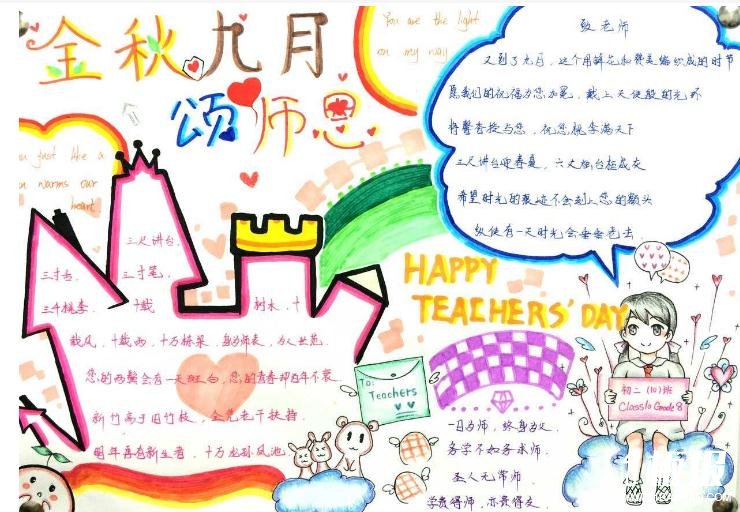 金秋九月
颂师恩
You are the light
on my way
致老师
又到了九月，这个用鲜花和赞美编织成的时节
愿我们的祝福为您加冕，戴上天使般的光环
将馨香授与您，祝您桃李满天下
三尺讲台迎春夏，六丈烟台植成灰
希望时光的痕迹不会刻上您的额头
纵使有一天时光会垂垂老去
you just like a
sun warms our
heart
三尺讲台，
三寸舌，三寸笔，
三千桃李，十载树木，十
载风，十载雨，十万栋梁，身为师表，为人世范
您的两鬓会有一天斑白，您的青春却百年不衰
新竹高于旧竹枝，全凭老干扶持
明年再有新生者，十万龙孙凤池
HAPPY
TEACHERS' DAY
To:
Teachers
一日为师，终身为父
务学不如务求师
圣人无常师
学贵得师，亦贵得友
初二(10)班
Class10 Grade 8